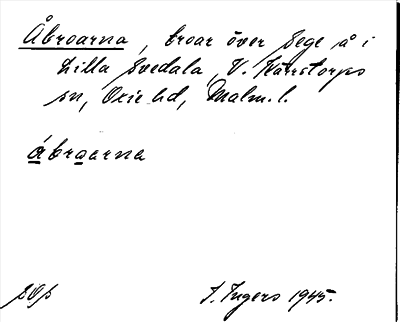 Åbroarna, broar över Sege å i
Lilla Svedala, V. Kärrstorps
sn, Oxie hd, Malm. l.
åbroarna
I. Ingers 1945.